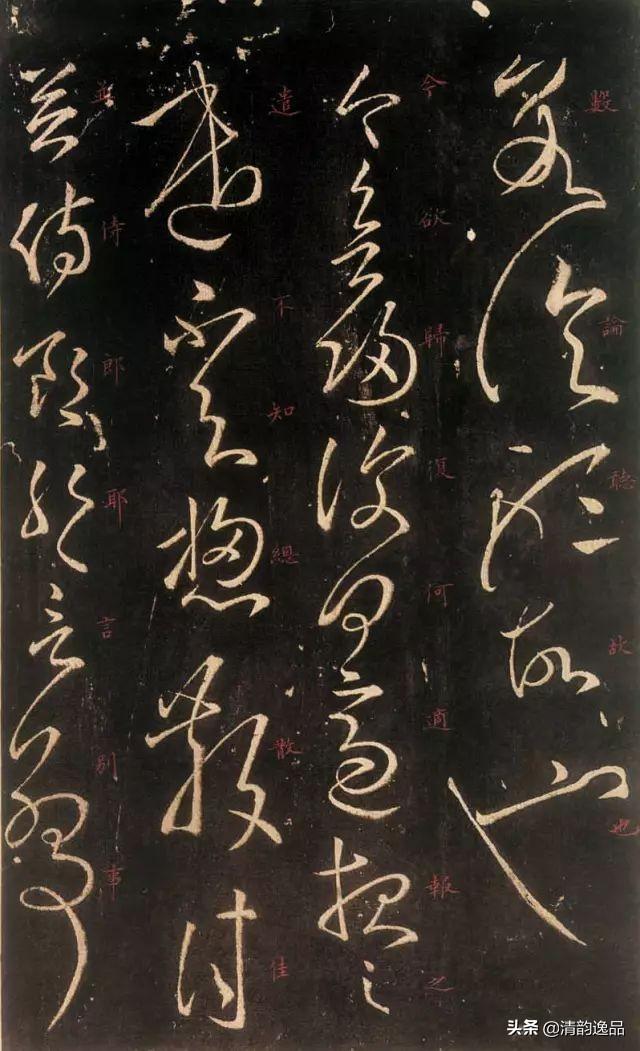 論聽故也
今欲歸復何適報之
遣不知總散佳
並侍郎耶言別事
头条 @清韵逸品